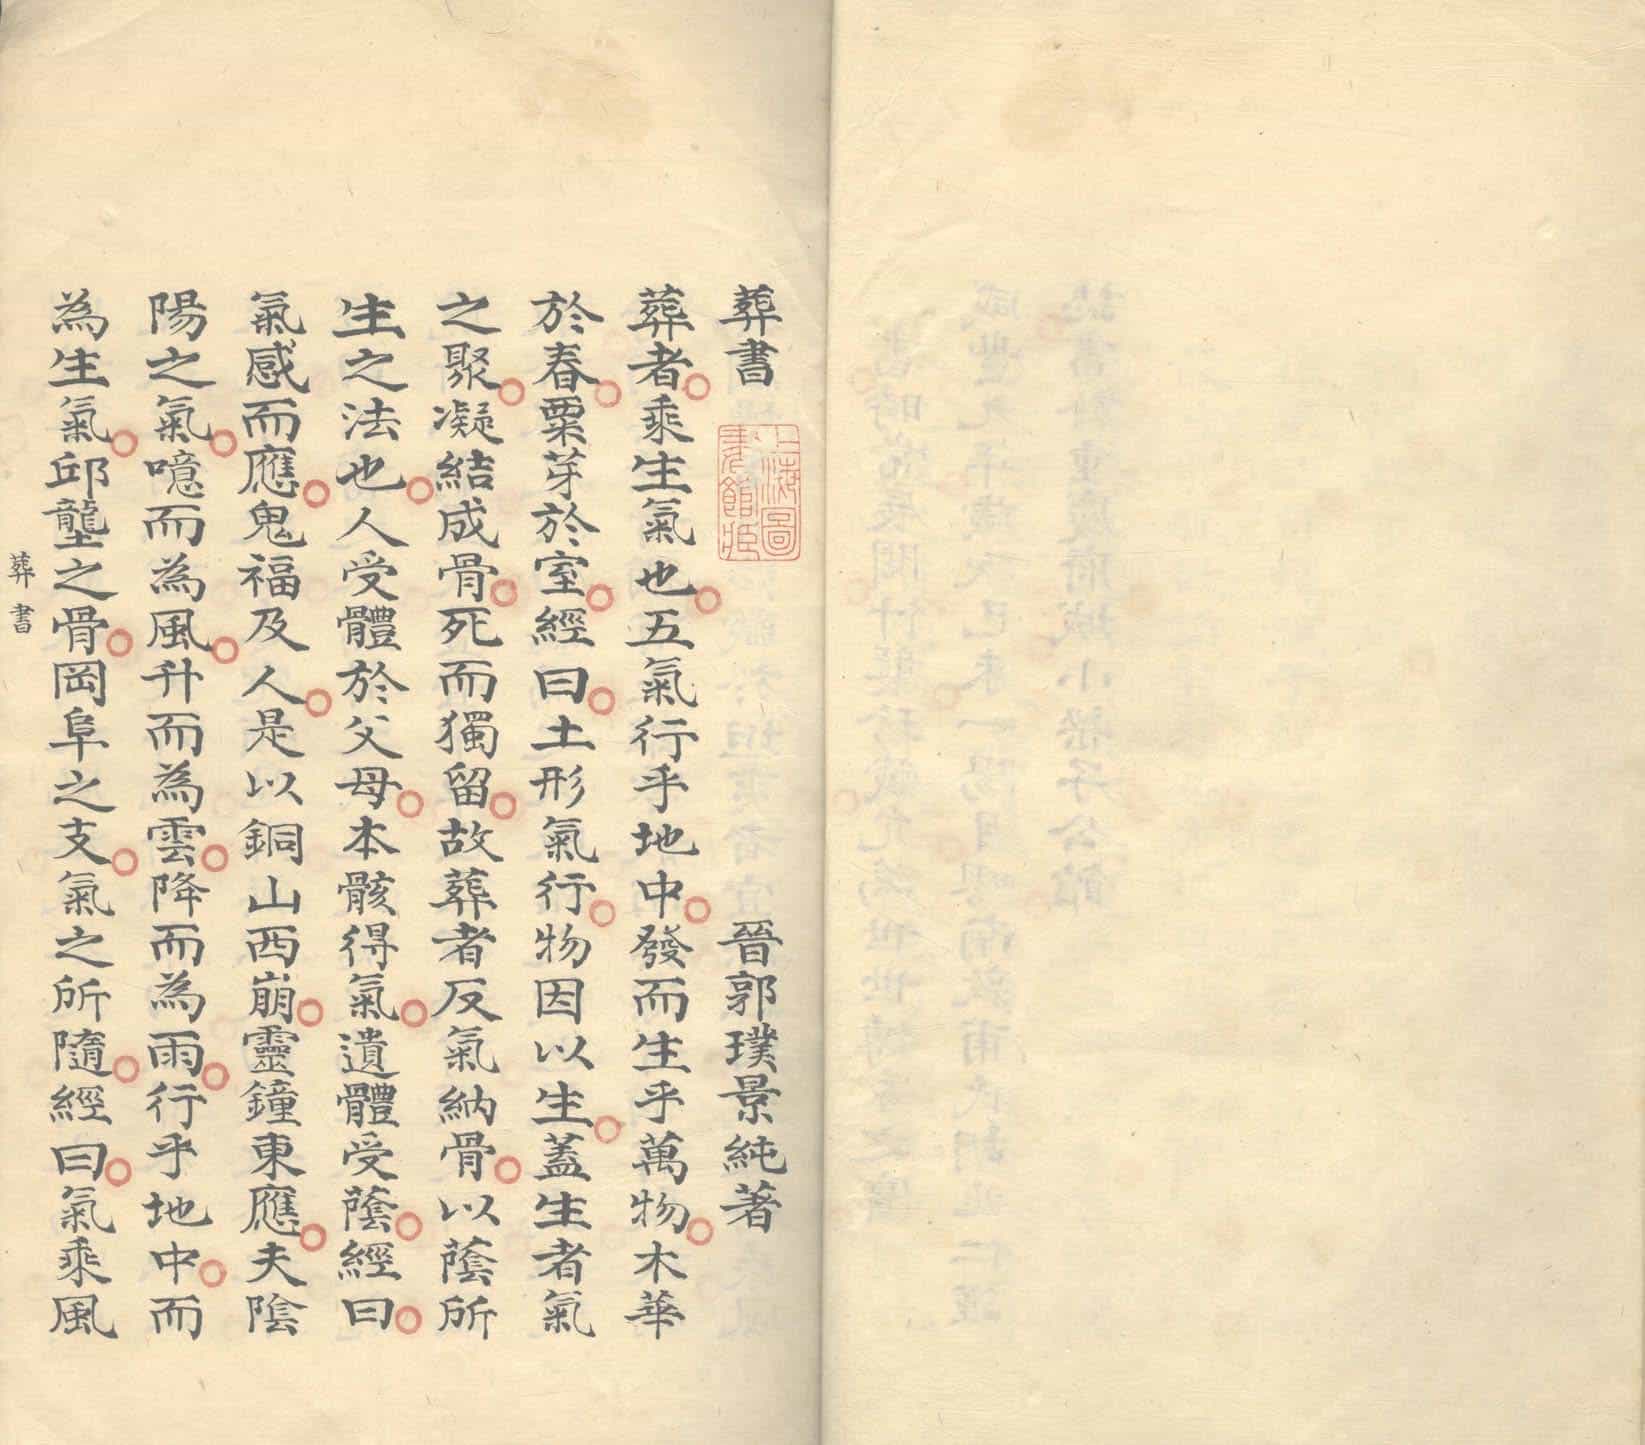 葬書 晉郭璞景純著
葬者乘生氣也五氣行乎地中發而生乎萬物木華
於春粟芽於室經曰土形氣行物因以生蓋生者氣
之聚凝結成骨死而獨留故葬者反氣納骨以蔭所
生之法也人受體於父母本骸得氣遺體受蔭經曰
氣感而應鬼福及人是以銅山西崩靈鐘東應夫陰
陽之氣噫而為風升而為雲降而為雨行乎地中而
為生氣邱壟之骨岡阜之支氣之所隨經曰氣乘風
葬書
上海圖
書館藏